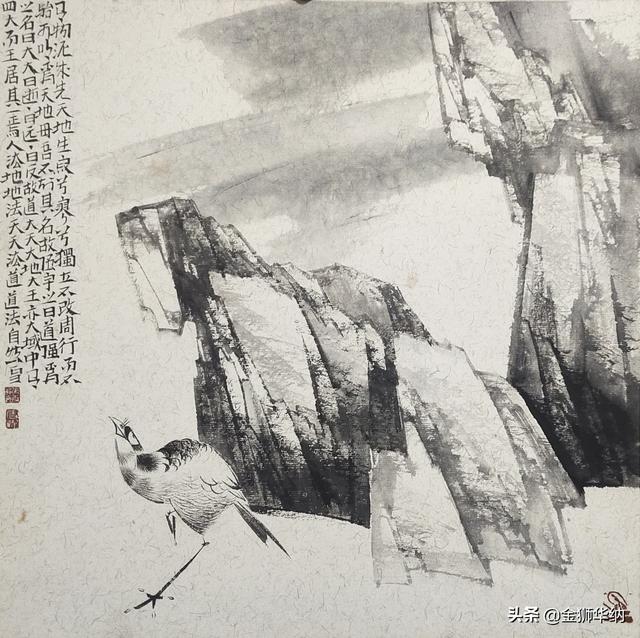 有物沌成先天地生寂兮寥兮獨立不改周行而不
殆可以為天地母吾不知其名故強字之曰道強為
之名曰大大曰逝逝曰远远曰反故道大天大地大王亦大域中有
四大而王居其一焉人法地地法天天法道道法自然
头条 @金狮华纳